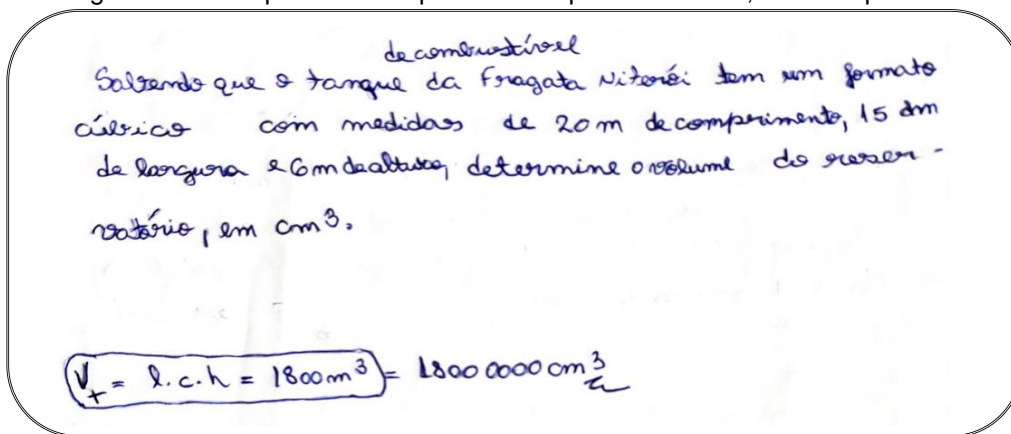 de combustível
Sabendo que o tanque da Fragata Niterói tem um formato
cúbico com medidas de 20 m de comprimento, 15 dm
de largura e 6m de altura, determine o volume do reser-
vatório, em cm³.
V = l.c.h = 1800 m³ = 1800 0000 cm³